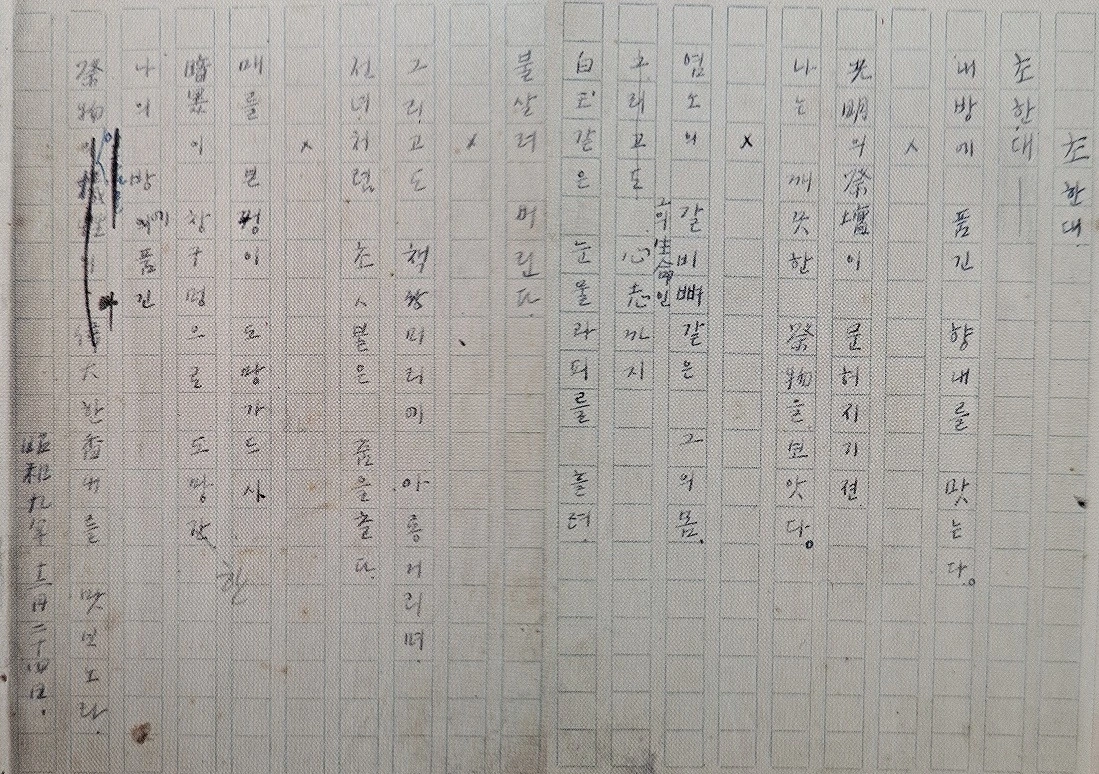 초 한 대
초 한 대 ―
내 방에 품긴 향내를 맛는다。
×
光明의 祭壇이 문허지기 젼
나는 깨끗한 祭物을 보앗다。
×
염소의 갈비뼈같은 그의 몸.
그의 生命인
그래고도 心志까지
白玉같은 눈물과 피를 흘려
불살려 버린다.
×
그리고도 책상머리에 아롱거리며
선녀처럼 초ㅅ불은 춤을 춘다.
×
매를 본 꿩이 도망가드시
暗黑이 창구멍으로 도망간
한
나의 방에 품긴
祭物의 偉大한 香내를 맛보노라.
昭和九年 十二月 二十四日.